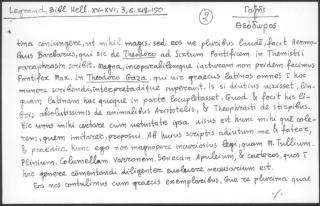 Legrand, Bibl. Hell. XV-XVI, 3, σ. 148-150
② Γαζῆς
Θεόδωρος
tina coniungere, ut nihil magis. sed eos ne pluribus laudē, facit Hermo-
laus Barbarus, qui sic de Theodoro ad Sixtum Pontificem in Themistii
paraphrasin scribit. Magna, incomparabilemque iacturam non pridem fecimus
Pontifex Max. in Theodoro Gaza, qui vir graecus latinos omnes i hoc
munere scribendi, interpretandique superavit. Is si diutius vixisset, lin-
guam latinam hac quoque in parte locupletasset. Quod & fecit his li-
bris absolutissimis de animalibus Aristotelis, & Theophrasti de stirpibus.
Hic unus mihi certare cum vetustate ipsa visus est hunc mihi quē cole-
rem, quem imitarer, proposui. Ab huius scriptis adiutum me & fateor,
& praedico. hunc ego non magnopere incuriosius legi, quam M. Tullium.
Plinium. Columellam. Varronem. Senecam. Apuleium, & caeteros, quos i
hoc genere commentandi diligenter evolvere necessarium est.
Eos nos contulimus cum graecis exemplaribus, que re plurima quae
./.